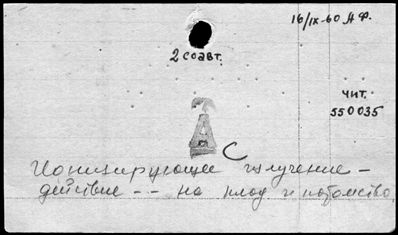 16/IX-60 А.Ф.
2 соавт.
чит.
550035
А
С
Ионизирующее излучение -
действие -- на плод и потомство